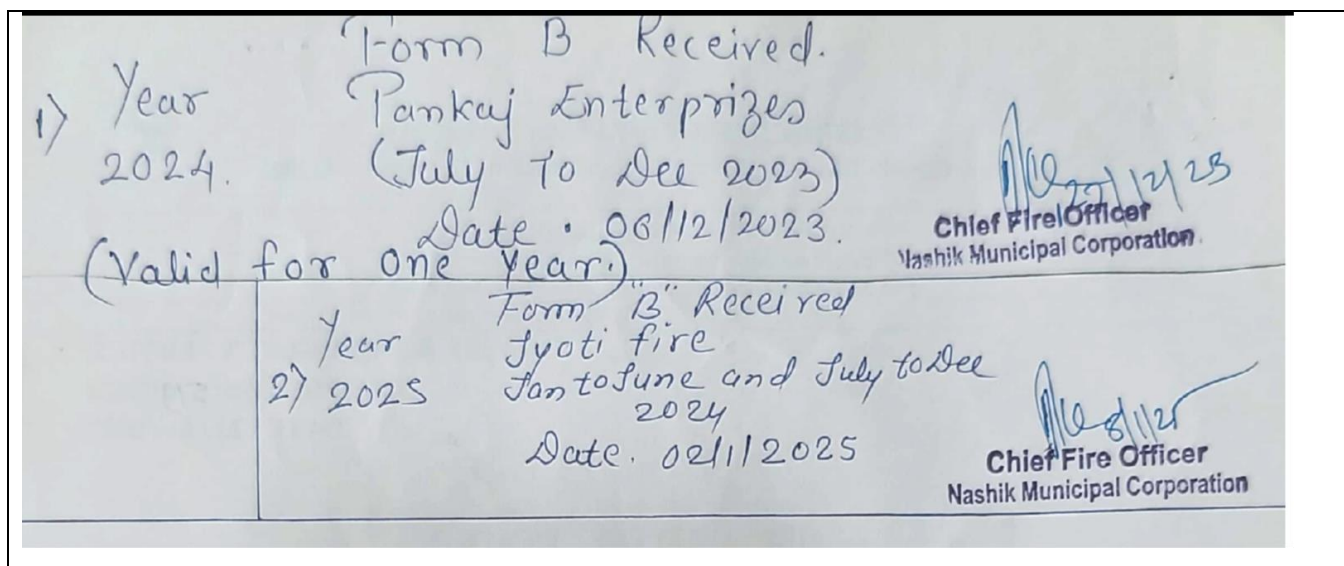 Form B Received.
1) Year Pankaj Enterprizes
2024. (July To Dec 2023)
Date . 06/12/2023.
22/12/23
Chief Fire Officer
Nashik Municipal Corporation
(Valid for One Year.)
Form "B" Received
Year Jyoti fire
2) 2025 Jan to June and July to Dec
2024
Date. 02/1/2025
8/1/25
Chief Fire Officer
Nashik Municipal Corporation